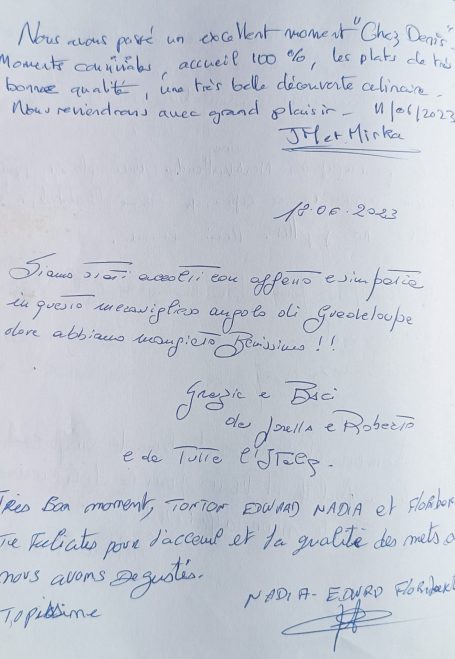 Nous avons passé un excellent moment "Chez Denis".
Moments conviviales, accueil 100 %, les plats de très
bonne qualité, une très belle découverte culinaire.
Nous reviendrons avec grand plaisir - 11/06/2023
JM et Mirka
18.06.2023
Siamo stati accolti con affetto e simpatia
in questo meraviglioso angolo di Guadeloupe
dove abbiamo mangiato Benissimo !!
Grazie e Baci
da Jonella e Roberto
e da Tutta l'Italia.
Très Bon moment, TONTON EDWRAD NADIA et
Te Feliciates pour l'acceuil et la qualité des mets
nous avons Degustés.
Topissime
NADIA - EDWRD